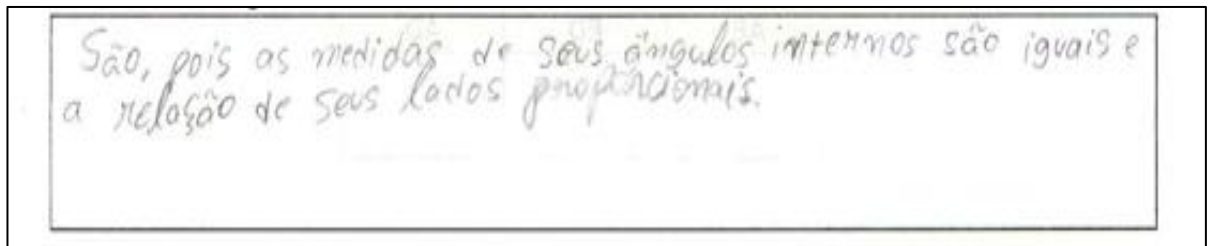 São, pois as medidas de seus ângulos internos são iguais e
a relação de seus lados proporcionais.